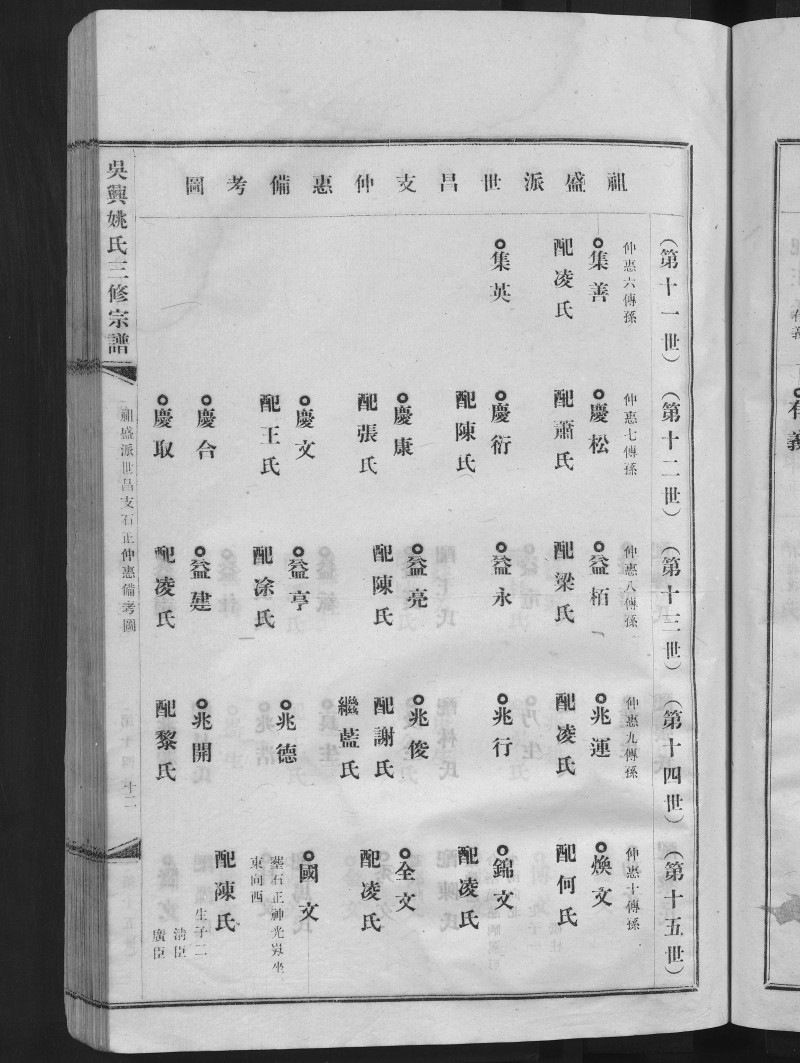 祖盛派世昌支仲惠備考圖
(第十一世)
仲惠六傳孫
集善
配凌氏
集英
(第十二世)
仲惠七傳孫
慶松
配蕭氏
慶衍
配陳氏
慶康
配張氏
慶文
配王氏
慶合
慶取
(第十三世)
仲惠八傳孫
益栢
配梁氏
益永
益亮
配陳氏
益亨
配凃氏
益建
配凌氏
(第十四世)
仲惠九傳孫
兆運
配凌氏
兆行
兆俊
配謝氏
繼藍氏
兆德
兆開
配黎氏
(第十五世)
仲惠十傳孫
煥文
配何氏
錦文
配凌氏
全文
配凌氏
國文
墓石正神光㘭坐
東向西
配陳氏
生子二
清臣
廣臣
吳興姚氏三修宗譜
祖盛派世昌支石正仲惠備考圖
十二
有義